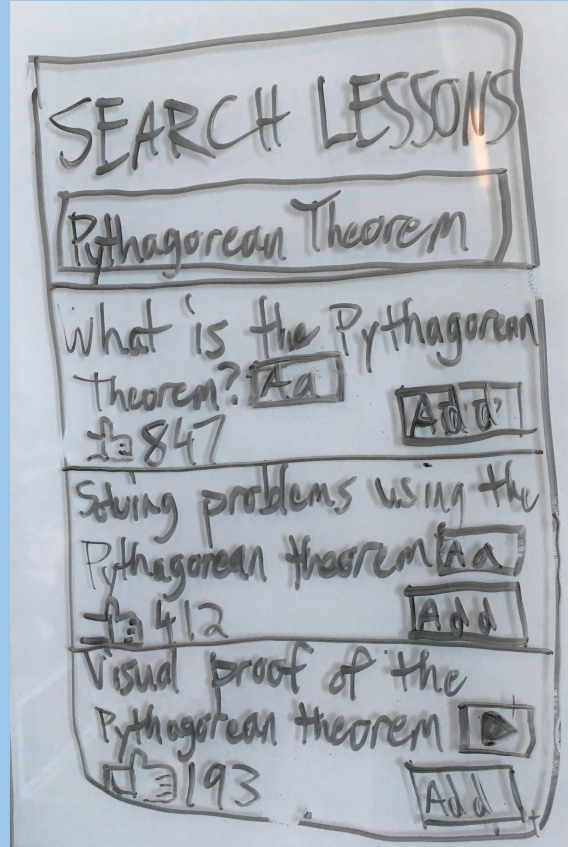 SEARCH LESSONS
Pythagorean Theorem
What is the Pythagorean
Theorem? Aa
847 Add
Solving problems using the
Pythagorean theorem Aa
412 Add
Visual proof of the
Pythagorean theorem
193 Add